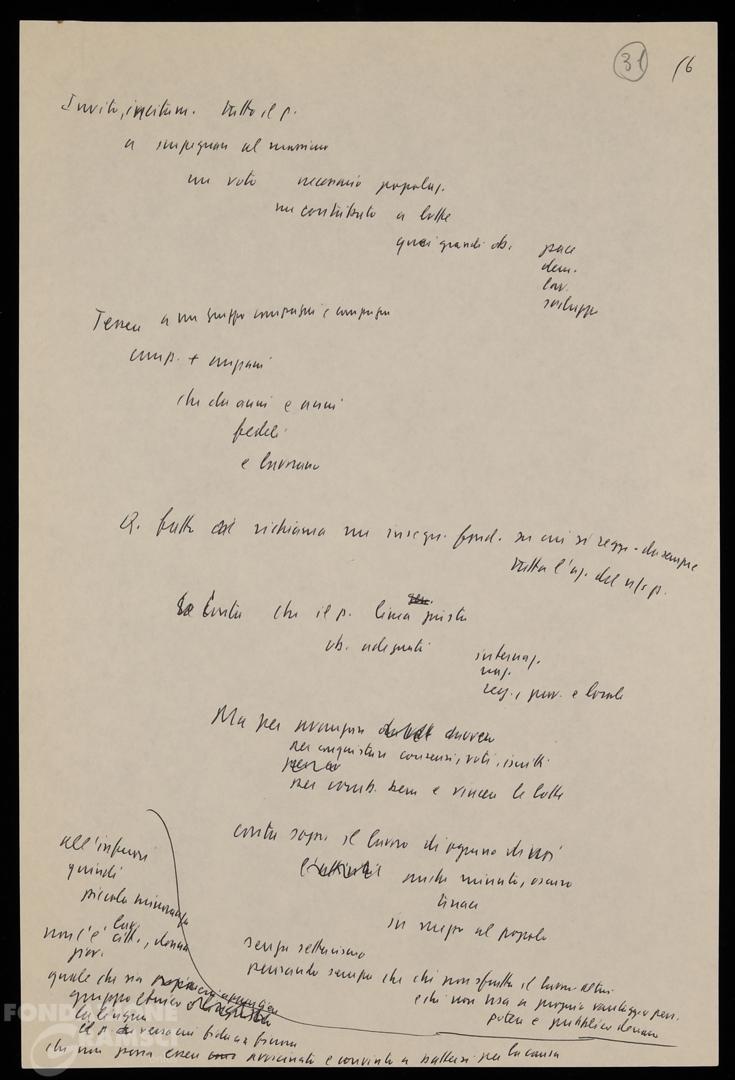 31 16
Invito, incitam. tutto il p.
a impegnarsi al massimo
un voto necessario popolaz.
un contributo a lotte
quei grandi ob. pace
dem.
lav.
sviluppo
Tessera a un gruppo compagni e compagne
comp. + anziani
che da anni e anni
fedeli
e lavorano
Q. fatto richiama un insegn. fond. su cui si regge da sempre
tutta l'az. del n/s p.
Conta che il p. linea giusta
ob. adeguati internaz.
naz.
reg., prov. e locale
Ma per avanzare davvero
per conquistare consensi, voti, iscritti
per comb. bene e vincere le lotte
conta sopra il lavoro di ognuno di noi
anche minuto, oscuro
tenace
in mezzo al popolo
senza settarismo
pensando sempre che chi non sfrutta il lavoro altrui
e chi non usa a proprio vantaggio pers.
potere e pubblico denaro
all'infuori
quindi
piccola minoranza
non c'è citt., donna
lav.
giov.
quale che sia
gruppo etnico
la lingua
il p. verso cui fiducia finora
che non possa essere avvicinato e convinto a battersi per la causa
FONDAZIONE
GRAMSCI